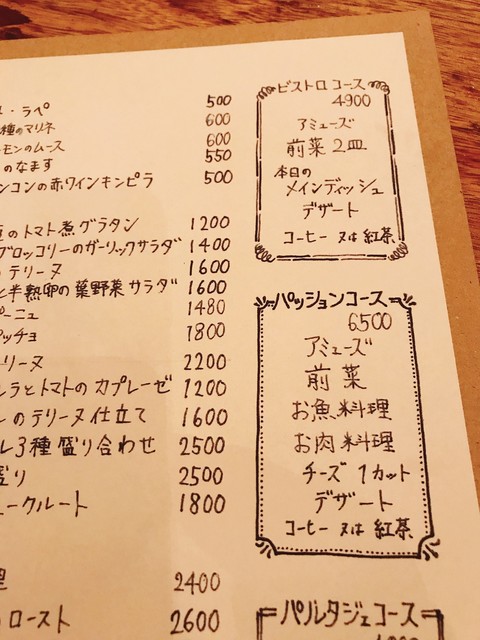 ・ラペ 500
種のマリネ 600
ーモンのムース 600
のなます 550
ンコンの赤ワインキンピラ 500
のトマト煮グラタン 1200
ブロッコリーのガーリックサラダ 1400
テリーヌ 1600
と半熟卵の葉野菜サラダ 1600
ーニュ 1480
パッチョ 1800
リーヌ 2200
ラとトマトのカプレーゼ 1200
ーのテリーヌ仕立て 1600
レ3種盛り合わせ 2500
盛り 2500
ュークルート 1800
理 2400
のロースト 2600
ビストロコース
4900
アミューズ
前菜2皿
本日の
メインディッシュ
デザート
コーヒー又は紅茶
パッションコース
6500
アミューズ
前菜
お魚料理
お肉料理
チーズ1カット
デザート
コーヒー又は紅茶
パルタジェコース